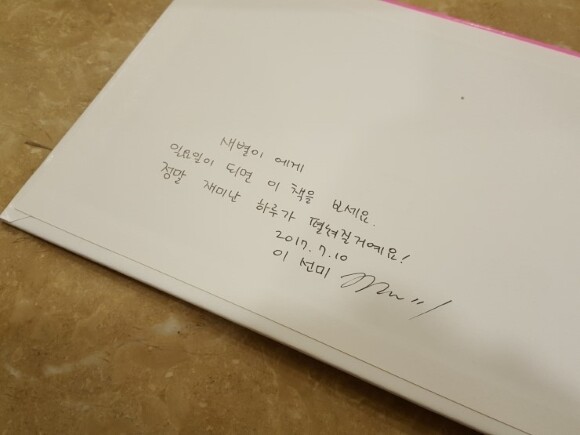 새별이 에게
일요일이 되면 이 책을 보세요.
정말 재미난 하루가 펼쳐질거예요!
2017. 7. 10
이 선미